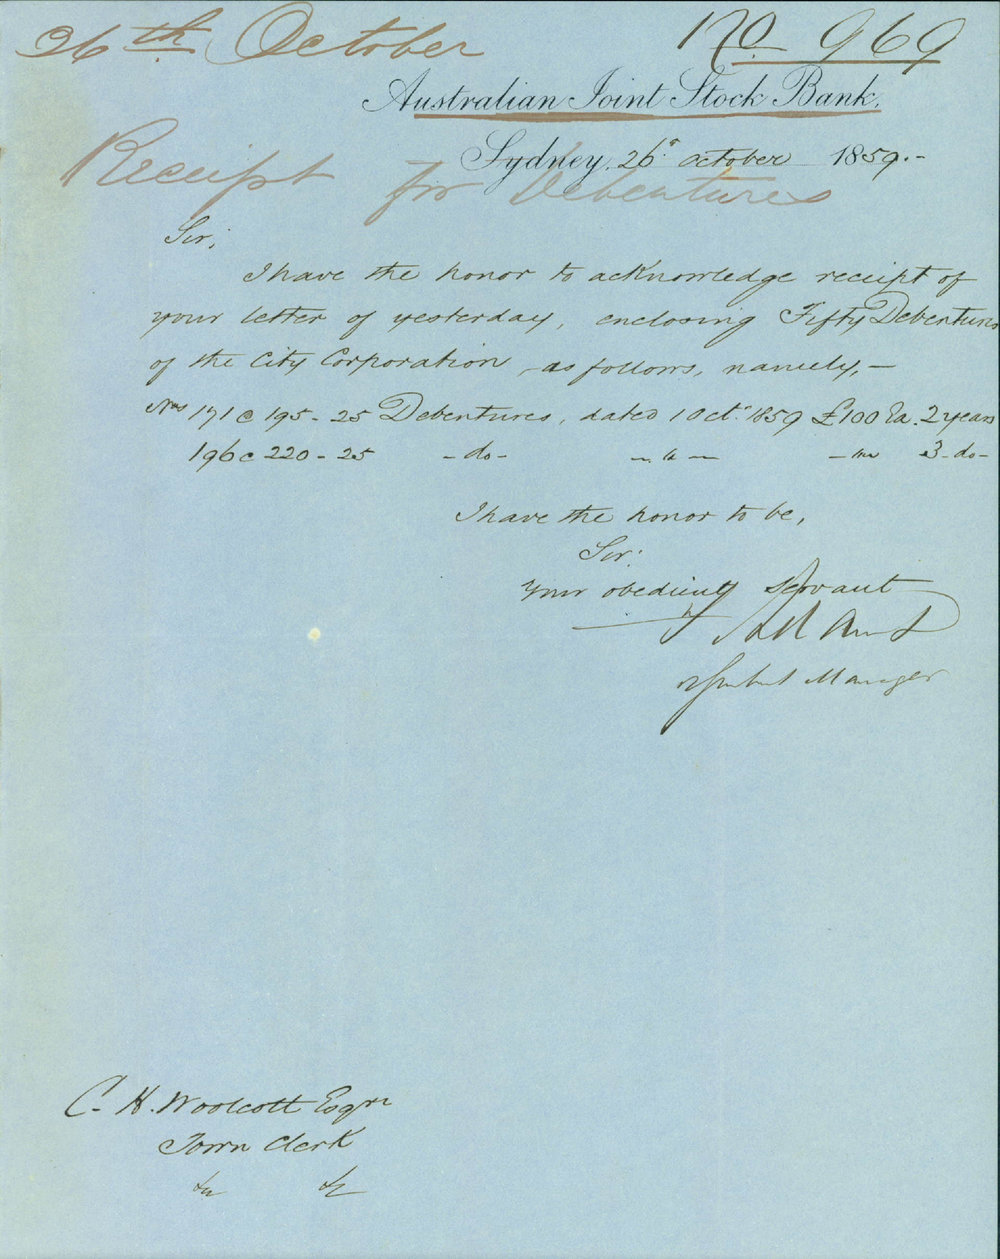 26th October
No 969
Australian Joint Stock Bank.
Sydney, 26 October 1859.-
Receipt for Debentures
Sir,
I have the honor to acknowledge receipt of
your letter of yesterday, enclosing Fifty Debentures
of the City Corporation, as follows, namely,-
Nos 171 @ 195 - 25 Debentures, dated 1 Oct. 1859 £100 Ea. 2 years
196 @ 220 - 25 - do - - - 3 - do -
I have the honor to be,
Sir.
Your obedient Servant
Manager
C. H. Woolcott Esqre
Town Clerk
&c &c